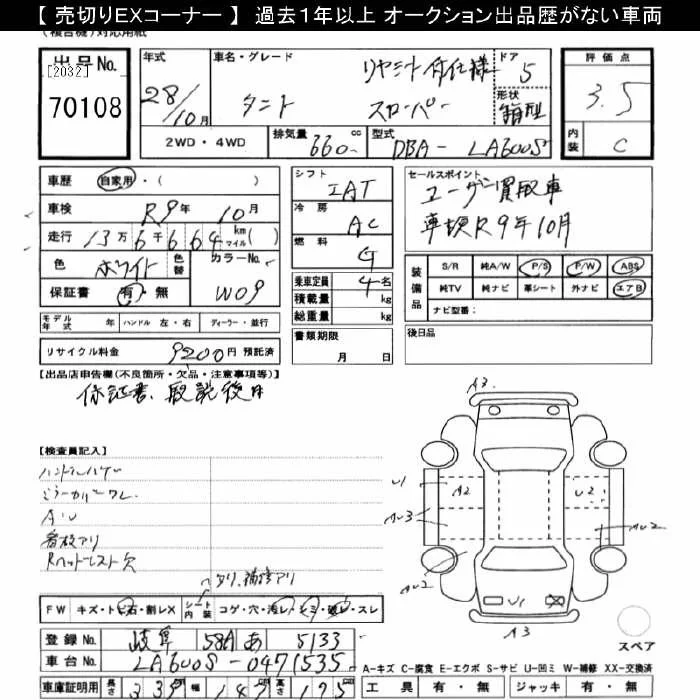 【 売切りEXコーナー 】 過去１年以上 オークション出品歴がない車両
(複合機)対応用紙
出品No.
[2032]
70108
年式
28/10月
車名・グレード
リヤシート付仕様
タント スローパー
ドア
5
形状
箱型
評価点
3.5
内装
C
2WD・4WD
排気量 660 cc
型式 DBA-LA600S
車歴 自家用・( )
車検 R9年10月
走行 13万6千664 km マイル( )
色 ホワイト 色替
カラーNo.
W09
保証書 有・無
シフト
IAT
冷房
AC
燃料
G
乗車定員 4名
積載量 kg
総重量 kg
セールスポイント
ユーザー買取車
車検R9年10月
装備品
S/R 純A/W P/S P/W ABS
純TV 純ナビ 革シート 外ナビ エアB
ナビ型番:
モデル年式 年 ハンドル 左・右 ディーラー・並行
リサイクル料金 9200円 預託済
書類期限
月 日
後日品
【出品店申告欄(不良箇所・欠品・注意事項等)】
保証書、取説後日
【検査員記入】
ハンドルハゲ
ミラーカバーワレ
A・U
看板アリ
Rヘッドレスト欠
タリ、補修アリ
FW キズ・トビ石・割レX
シート内装 コゲ・穴・汚レ・シミ・破レ・スレ
登録No. 岐阜 58A あ 5133
車台No. LA600S-0471535
車庫証明用 長さ 339 幅 147 高さ 175
A3
U1
A2
U2
U1
A3
スペア
A-キズ C-腐食 E-エクボ S-サビ U-凹ミ W-補修 XX-交換済
工具 有・無 ジャッキ 有・無